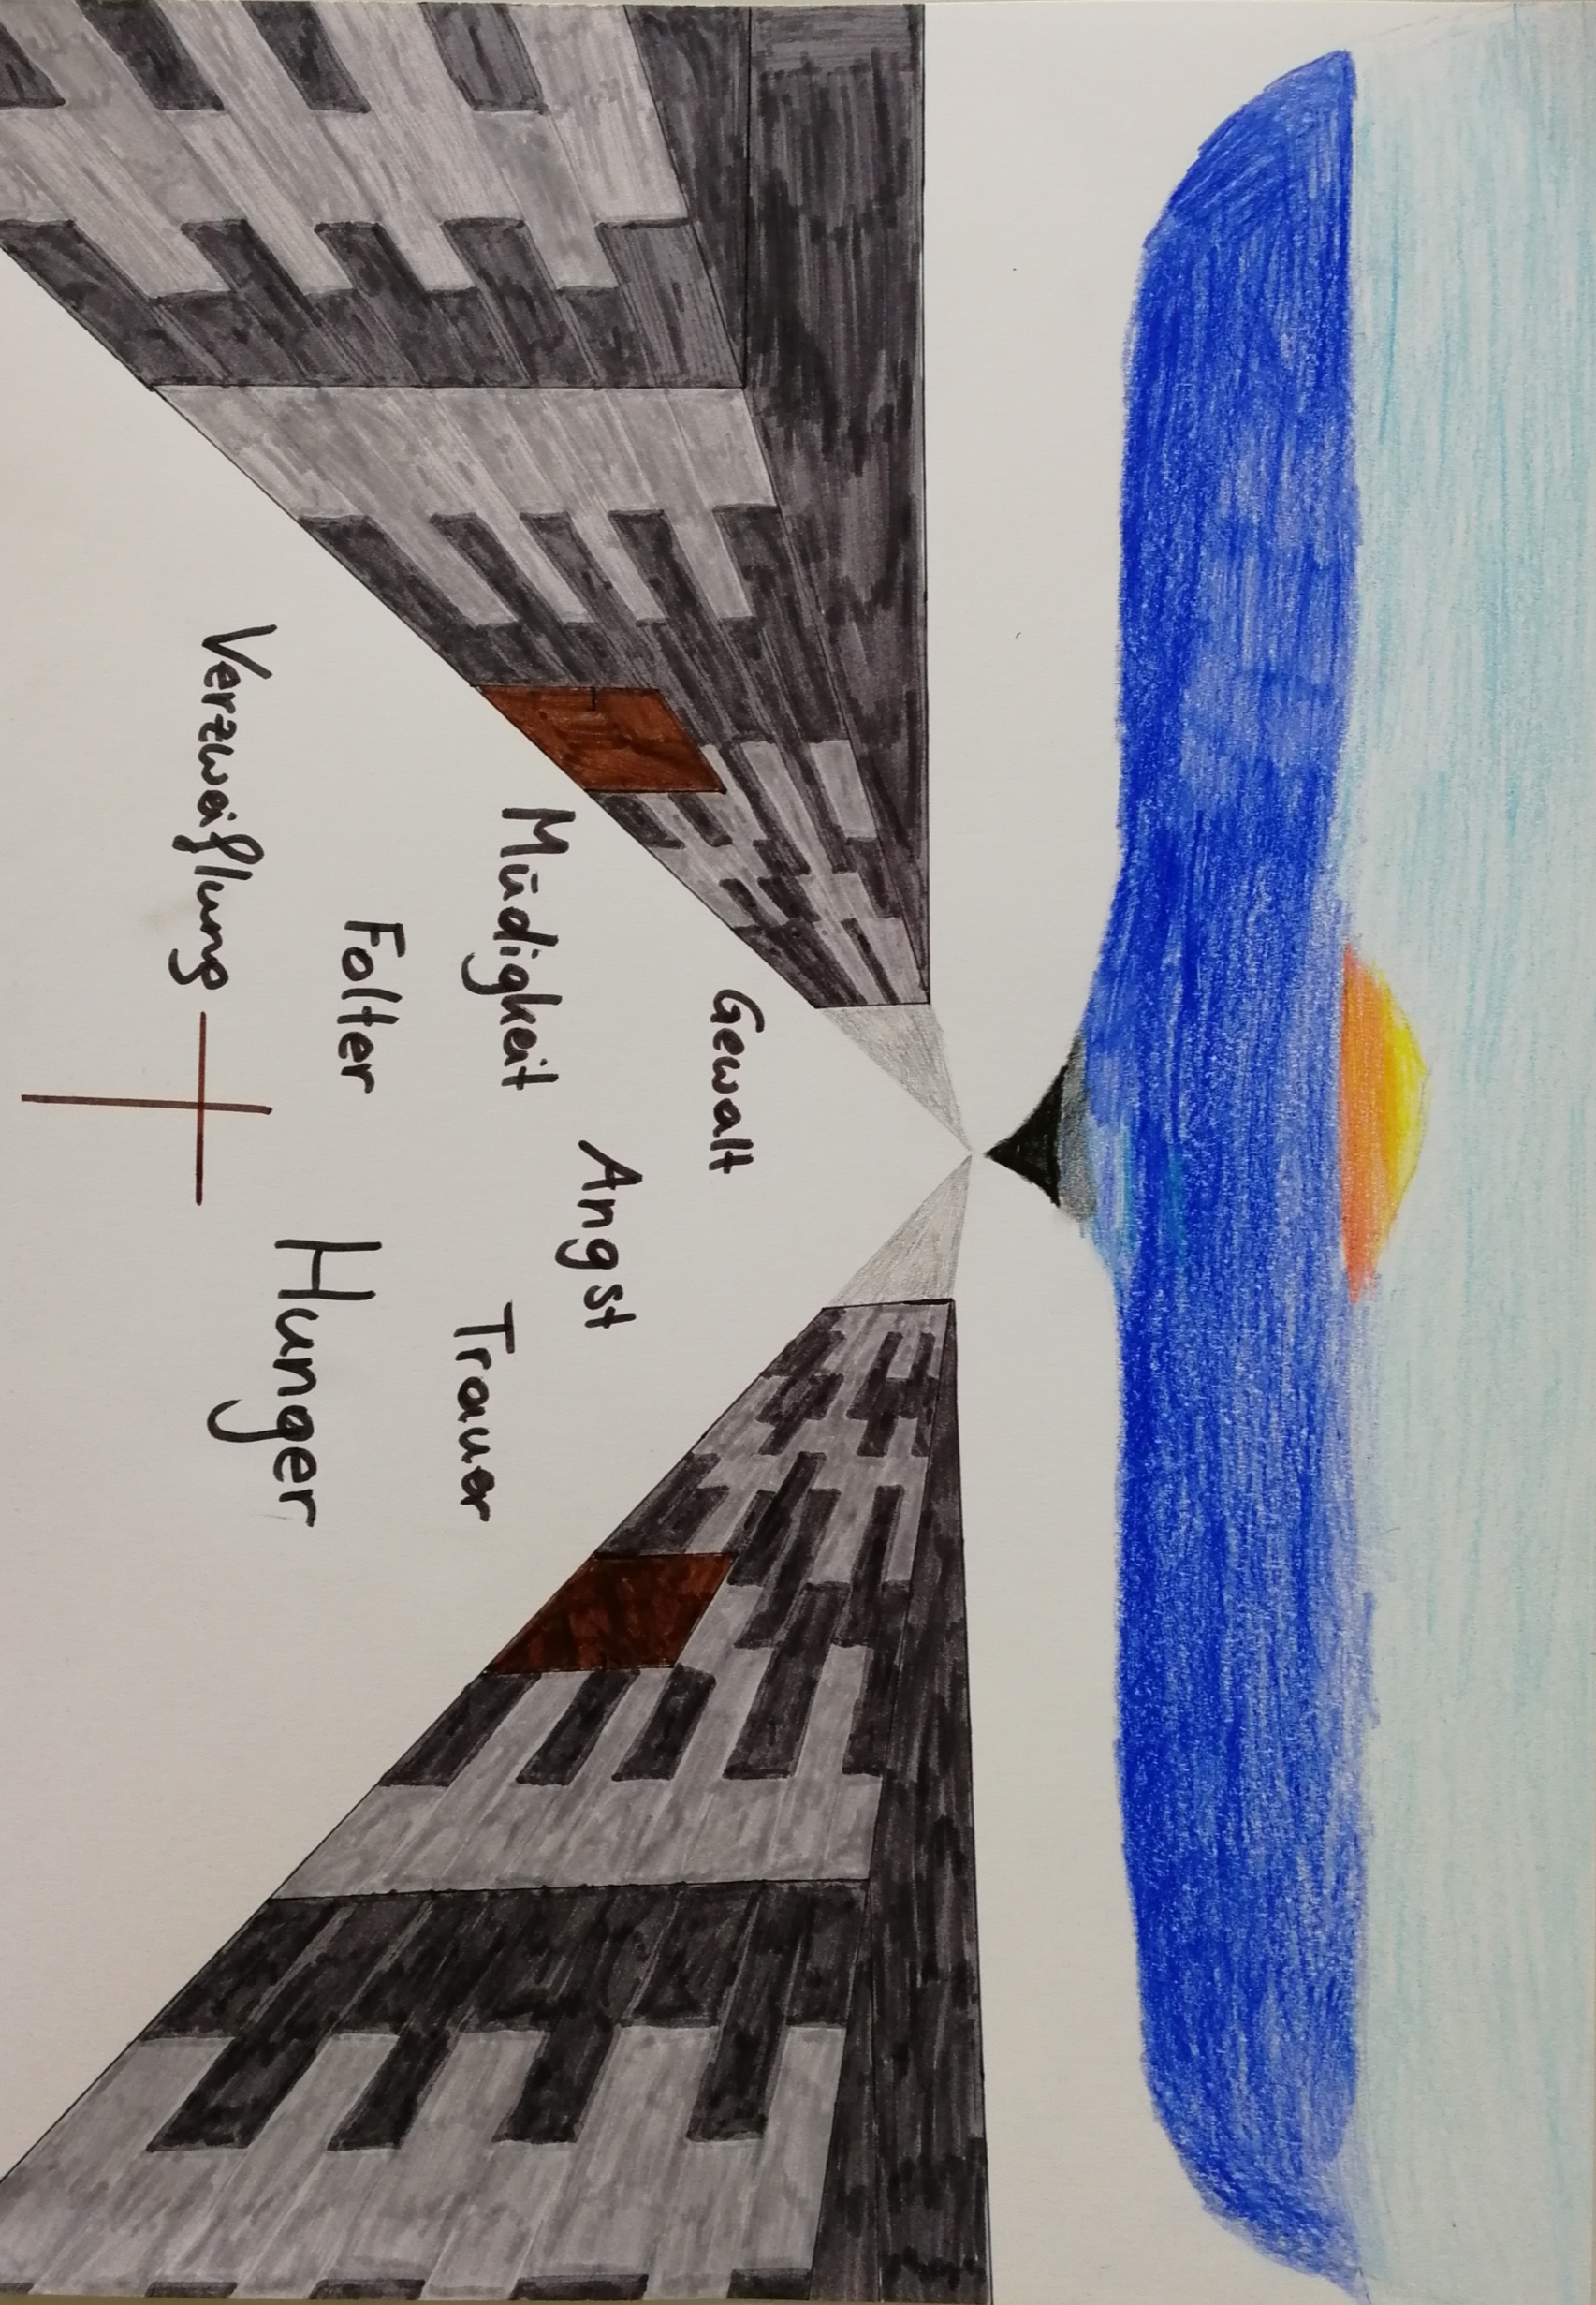 Gewalt
Angst
Müdigkeit
Trauer
Folter
Hunger
Verzweiflung